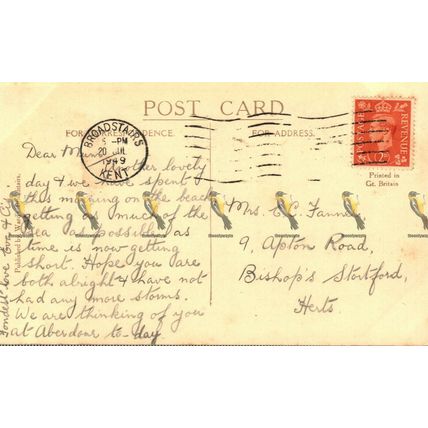 POST CARD
FOR CORRESPONDENCE.
FOR ADDRESS.
BROADSTAIRS
5 - PM
20 JUL
1949
KENT
POSTAGE
REVENUE
2D
Printed in
Gt. Britain
Dear Mum, Another lovely
day & we have spent
this morning on the beach
getting as much of the
sea as possible as
time is now getting
short. Hope you are
both alright & have not
had any more storms.
We are thinking of you
at Aberdare to-day.
Fondest love
Mrs. E.C. Fanner
9, Apton Road,
Bishop's Stortford,
Herts.
Published by